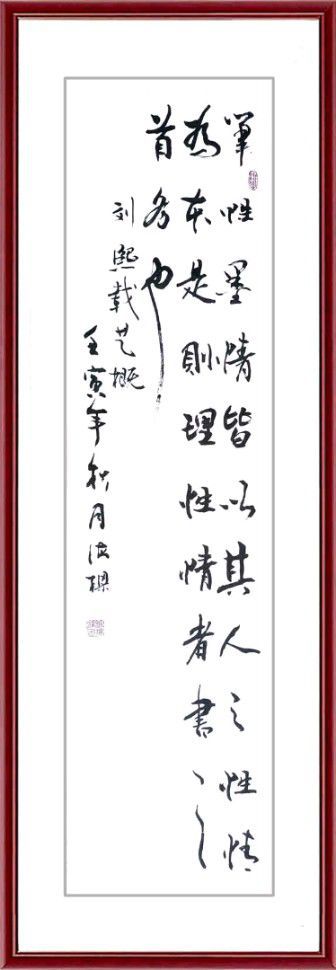 筆性墨情皆以其人之性情
為本是則理性情者書之
首务也
刘熙載艺概
壬寅年秋月